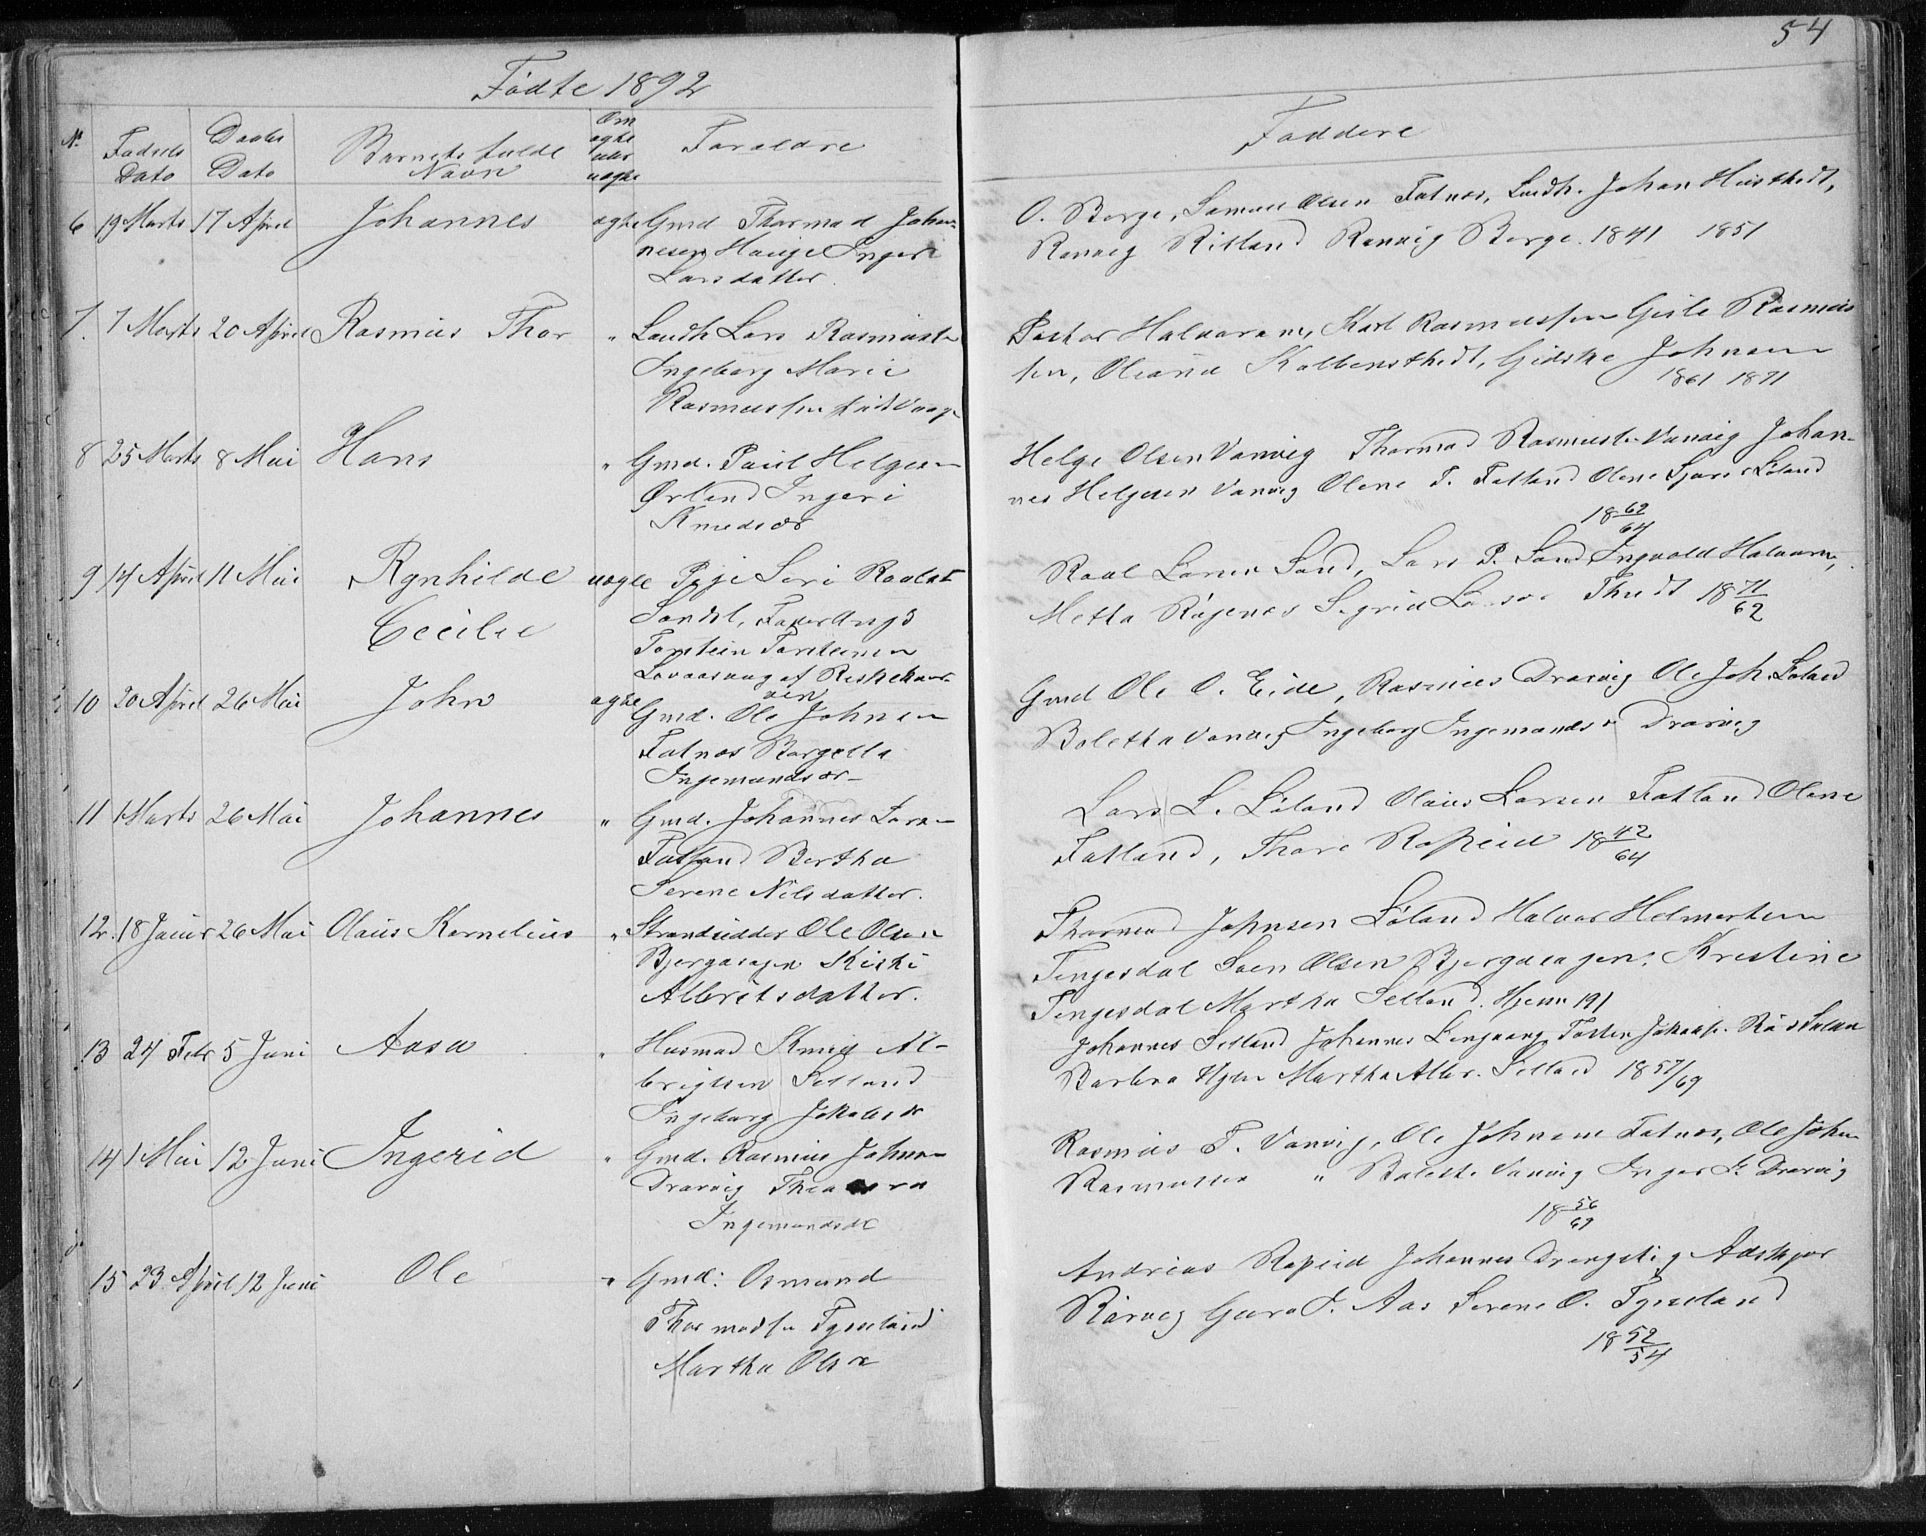 54
Fødte 1892
Faddere
No
Fødsels Dato
Daabs Dato
Barnets fulde Navn
Om ægte eller uægte
Forældre
6 19 Marts 17 April Johannes ægte Gmd Thormod Johan-
nesen Hauge Ingeri
Larsdatter.
O. Berge, Samuel Olsen Fatnæs, Landh. Johan Husthedt,
Ranveig Ritland Ranveig Berge. 1841 1851
7. 7 Marts 20 April Rasmus Thor " Landh Lars Rasmussen
Ingeborg Marie
Rasmussen født Vaage
Pastor Halvorsen, Karl Rasmussen Gisle Rasmus
sen, Oleana Kolbensthedt, Gidske Johnsen
1861 1871
8 25 Marts 8 Mai Hans " Gmd. Paul Helgesen
Ørland Ingeri
Knudsdr
Helge Olsen Vanvig Thormod Rasmussen Vanvig Johan-
nes Helgesen Vanvig Olene T. Fatland Olene Løland
18 62/64
9 14 April 11 Mai Rgnhilde uægte Pige Seri Roalds
Cecilie Sandst, Fader Ungk
Torstein Torsteinsen
Lovaasvaag af Riskekver-
ven
Roal Larsen Sand, Lars P. Sand Ingvald Halvorsen,
Metta Røgenes Sigrid Larsen Thedt 18 71/62
10 20 April 26 Mai John ægte Gmd. Ole Johnsen
Fatnæs Borgella
Ingemundsdr
Gmd Ole O. Eide, Rasmus Drarvig Ole Joh. Løland
Boletha Vanvig Ingeborg Ingemundsdr Drarvig
11 1 Marts 26 Mai Johannes " Gmd. Johannes Larsen
Fatland Bertha
Serene Nilsdatter.
Lars L. Løland Olaus Larsen Fatland Olene
Fatland, Thore Røpeid 18 42/64
12. 18 Januar 26 Mai Olaus Kornelius " Strandsidder Ole Olsen
Bjergaasen Kirsti
Albretsdatter.
Thormod Johnsen Løland Halvor Helmertsen
Tengesdal Sven Olsen Bjergaagen, Kristine
Tengesdal Martha Selland. Hjem 191
13 24 Febr 5 Juni Aasa " Husmd Knud Al-
brigtsen Selland
Ingeborg Jakobsdr
Johannes Selland Johannes Torsten Jakobs.
Barbra Hylen Martha Albr. Selland 18 57/69
14 1 Mai 12 Juni Ingerid " Gmd. Rasmus Johnsen
Drarvig Theodora
Ingemundsdt
Rasmus T. Vanvig, Ole Johnsen Fatnæs, Ole John
Rasmussen " Bolette Vanvig Inger Drarvig
18 56/67
15 23 April 12 Juni Ole " Gmd: Osmund
Thormodsen Tysseland
Martha Olsdr
Andreas Røpeid Johannes Drengstig Adskjær
Rørvig Guro J. Aas Serene O. Tysseland
18 52/54